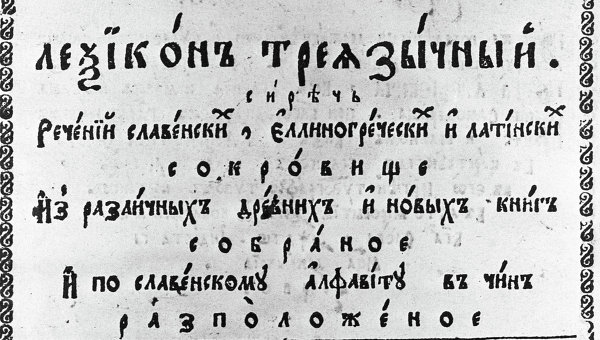 леѯїко́нъ треѧзы́чный.
си́рѣчь
Рече́нїй славе́нскихъ, є҆ллиногре́ческихъ и҆ лати́нскихъ
сокро́вище
И҆з̾ разли́чныхъ дре́внихъ и҆ но́выхъ кни́гъ
собра́ное
И҆ по славе́нскому а҆лфави́ту въ чи́нъ
разположе́ное